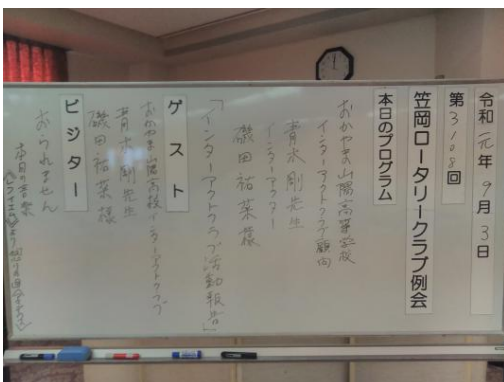 令和元年9月3日
第3108回
笠岡ロータリークラブ例会
本日のプログラム
おかやま山陽高等学校
インターアクトクラブ顧問
青木剛先生
インターアクター
磯田祐菜様
「インターアクトクラブ活動報告」
ゲスト
おかやま山陽高校インターアクトクラブ
青木剛先生
磯田祐菜様
ビジター
おられません
本日の言葉